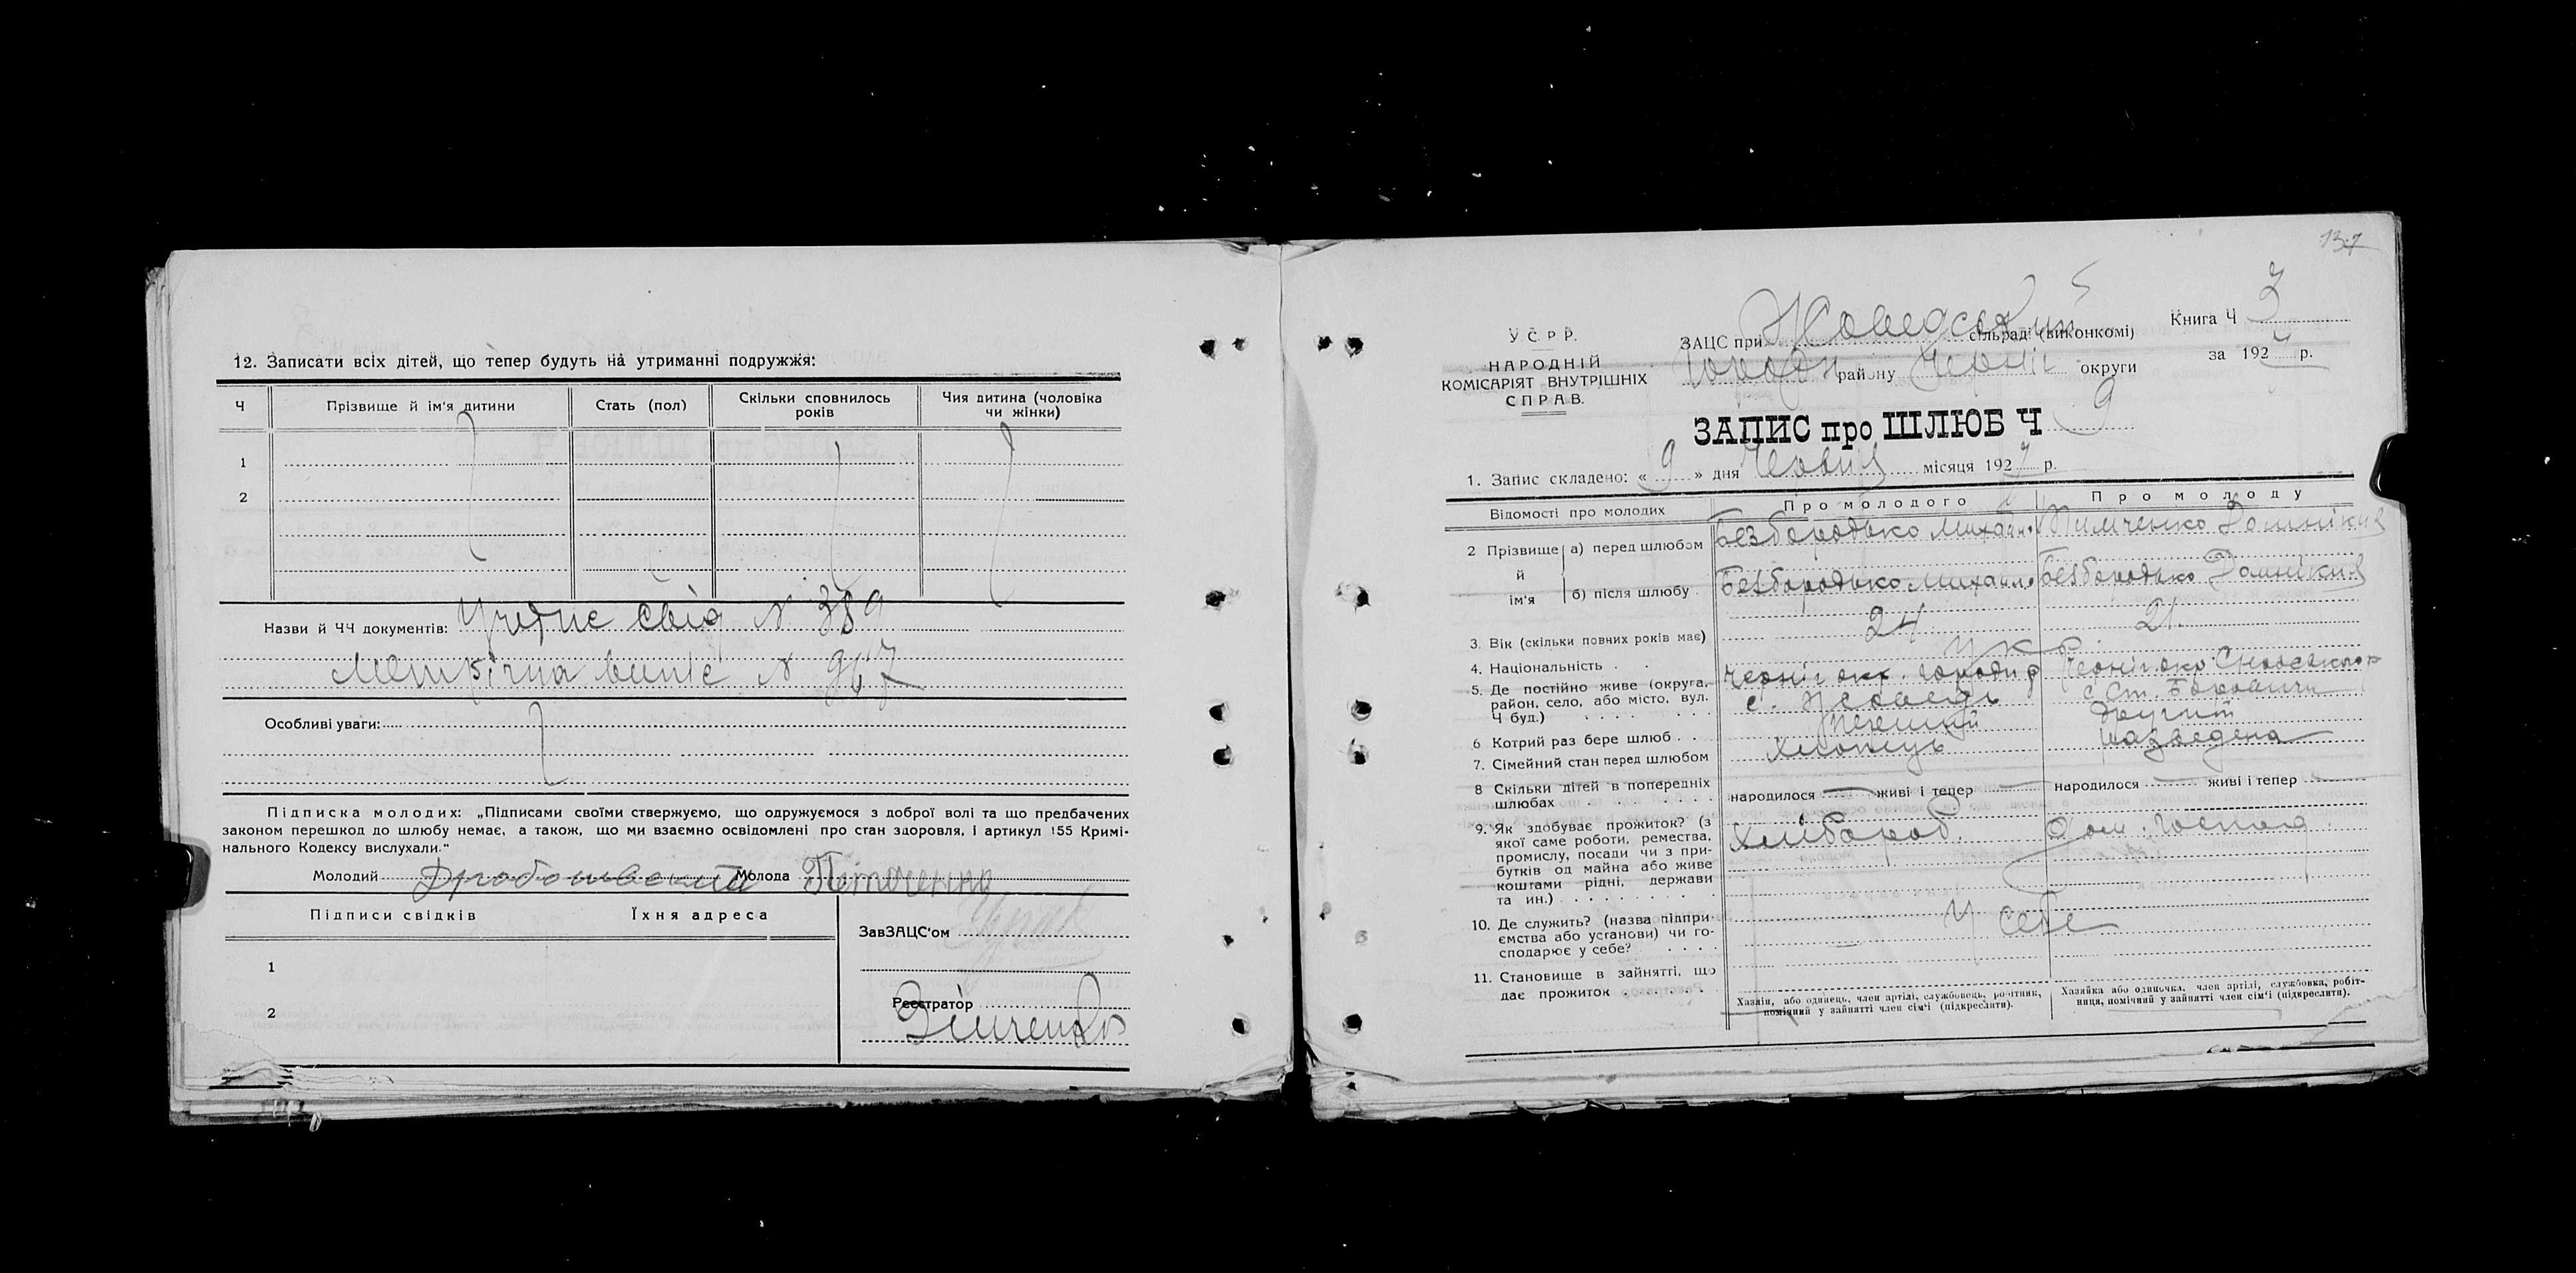 12. Записати всіх дітей, що тепер будуть на утриманні подружжя:
Ч Прізвище й ім'я дитини Стать (пол) Скільки сповнилось років Чия дитина (чоловіка чи жінки)
1
2
Назви й ЧЧ документів: свід N
Метрічна випіс N 967
Особливі уваги:
Підписка молодих: „Підписами своїми стверджуємо, що одружуємося з доброї волі та що предбачених
законом перешкод до шлюбу немає, а також, що ми взаємно освідомлені про стан здоровля, і артикул 155 Кримі-
нального Кодексу вислухали."
Молодий Молода
Підписи свідків Їхня адреса
ЗавЗАЦС'ом
1
Реєстратор
2
137
У.С.Р.Р.
НАРОДНІЙ
КОМІСАРІЯТ ВНУТРІШНІХ
СПРАВ.
ЗАЦС при Жоведський сільраді (виконкомі)
Городн району Черніг округи
Книга Ч 3
за 1927 р.
ЗАПИС про ШЛЮБ Ч 9
1. Запис складено: « 9 » дня місяця 1927 р.
Відомості про молодих Про молодого Про молоду
2 Прізвище й ім'я а) перед шлюбом Безбородько Михайло Домнікия
б) після шлюбу Безбородько Михайло Безбородько Домнікия
3. Вік (скільки повних років має) 24 21.
4. Національність . . укр.
5. Де постійно живе (округа, район, село, або місто, вул. Ч буд.) Черніг окр. Городн р с. Жоведь Черніг окр. Сновськ р с Ст. Боровичи
6 Котрий раз бере шлюб . . перший другий
7. Сімейний стан перед шлюбом хлопець разведена
8 Скільки дітей в попередніх шлюбах народилося живі і тепер народилося живі і тепер
9. Як здобуває прожиток? (з
якої саме роботи, ремества,
промислу, посади чи з при-
бутків од майна або живе
коштами рідні, держави
та ин.) Хлібороб. Дом. господ.
10. Де служить? (назва підпри-
ємства або установи) чи го-
сподарює у себе? У себе
11. Становище в зайнятті, що
дає прожиток
Хазяїн, або одинець, член артілі, службовець, робітник,
помічний у зайнятті член сім'ї (підкреслити).
Хазяйка або одиночка, член артілі, службовка, робіт-
ниця, помічний у зайнятті член сім'ї (підкреслити).